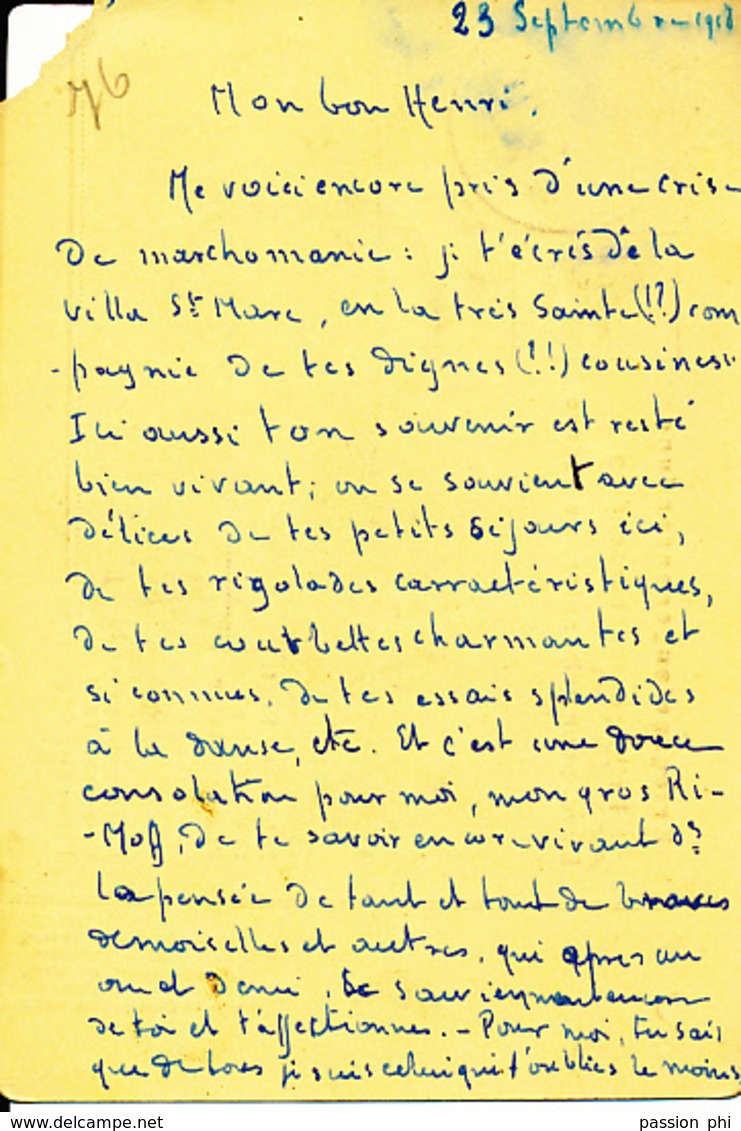 23 Septembre 1918
76
Mon bon Henri.
Me voici encore pris d'une crise
de marchomanie : je t'écris de la
villa St Marc, en la très Sainte (!?) com
-pagnie de tes dignes (!!) cousines.
Ici aussi ton souvenir est resté
bien vivant ; on se souvient avec
délices de tes petits séjours ici,
de tes rigolades carractéristiques,
de tes courbettes charmantes et
si connues, de tes essais splendides
à la danse, etc. Et c'est une douce
consolation pour moi, mon gros Ri-
-Moff, de te savoir encore vivant ds
la pensée de tant et tant de braves
demoiselles et autres, qui après un
an et demi, se souviennent encore
de toi et t'affectionnes. - Pour moi, tu sais
que de tous je suis celui qui t'oublies le moins,
passion phi